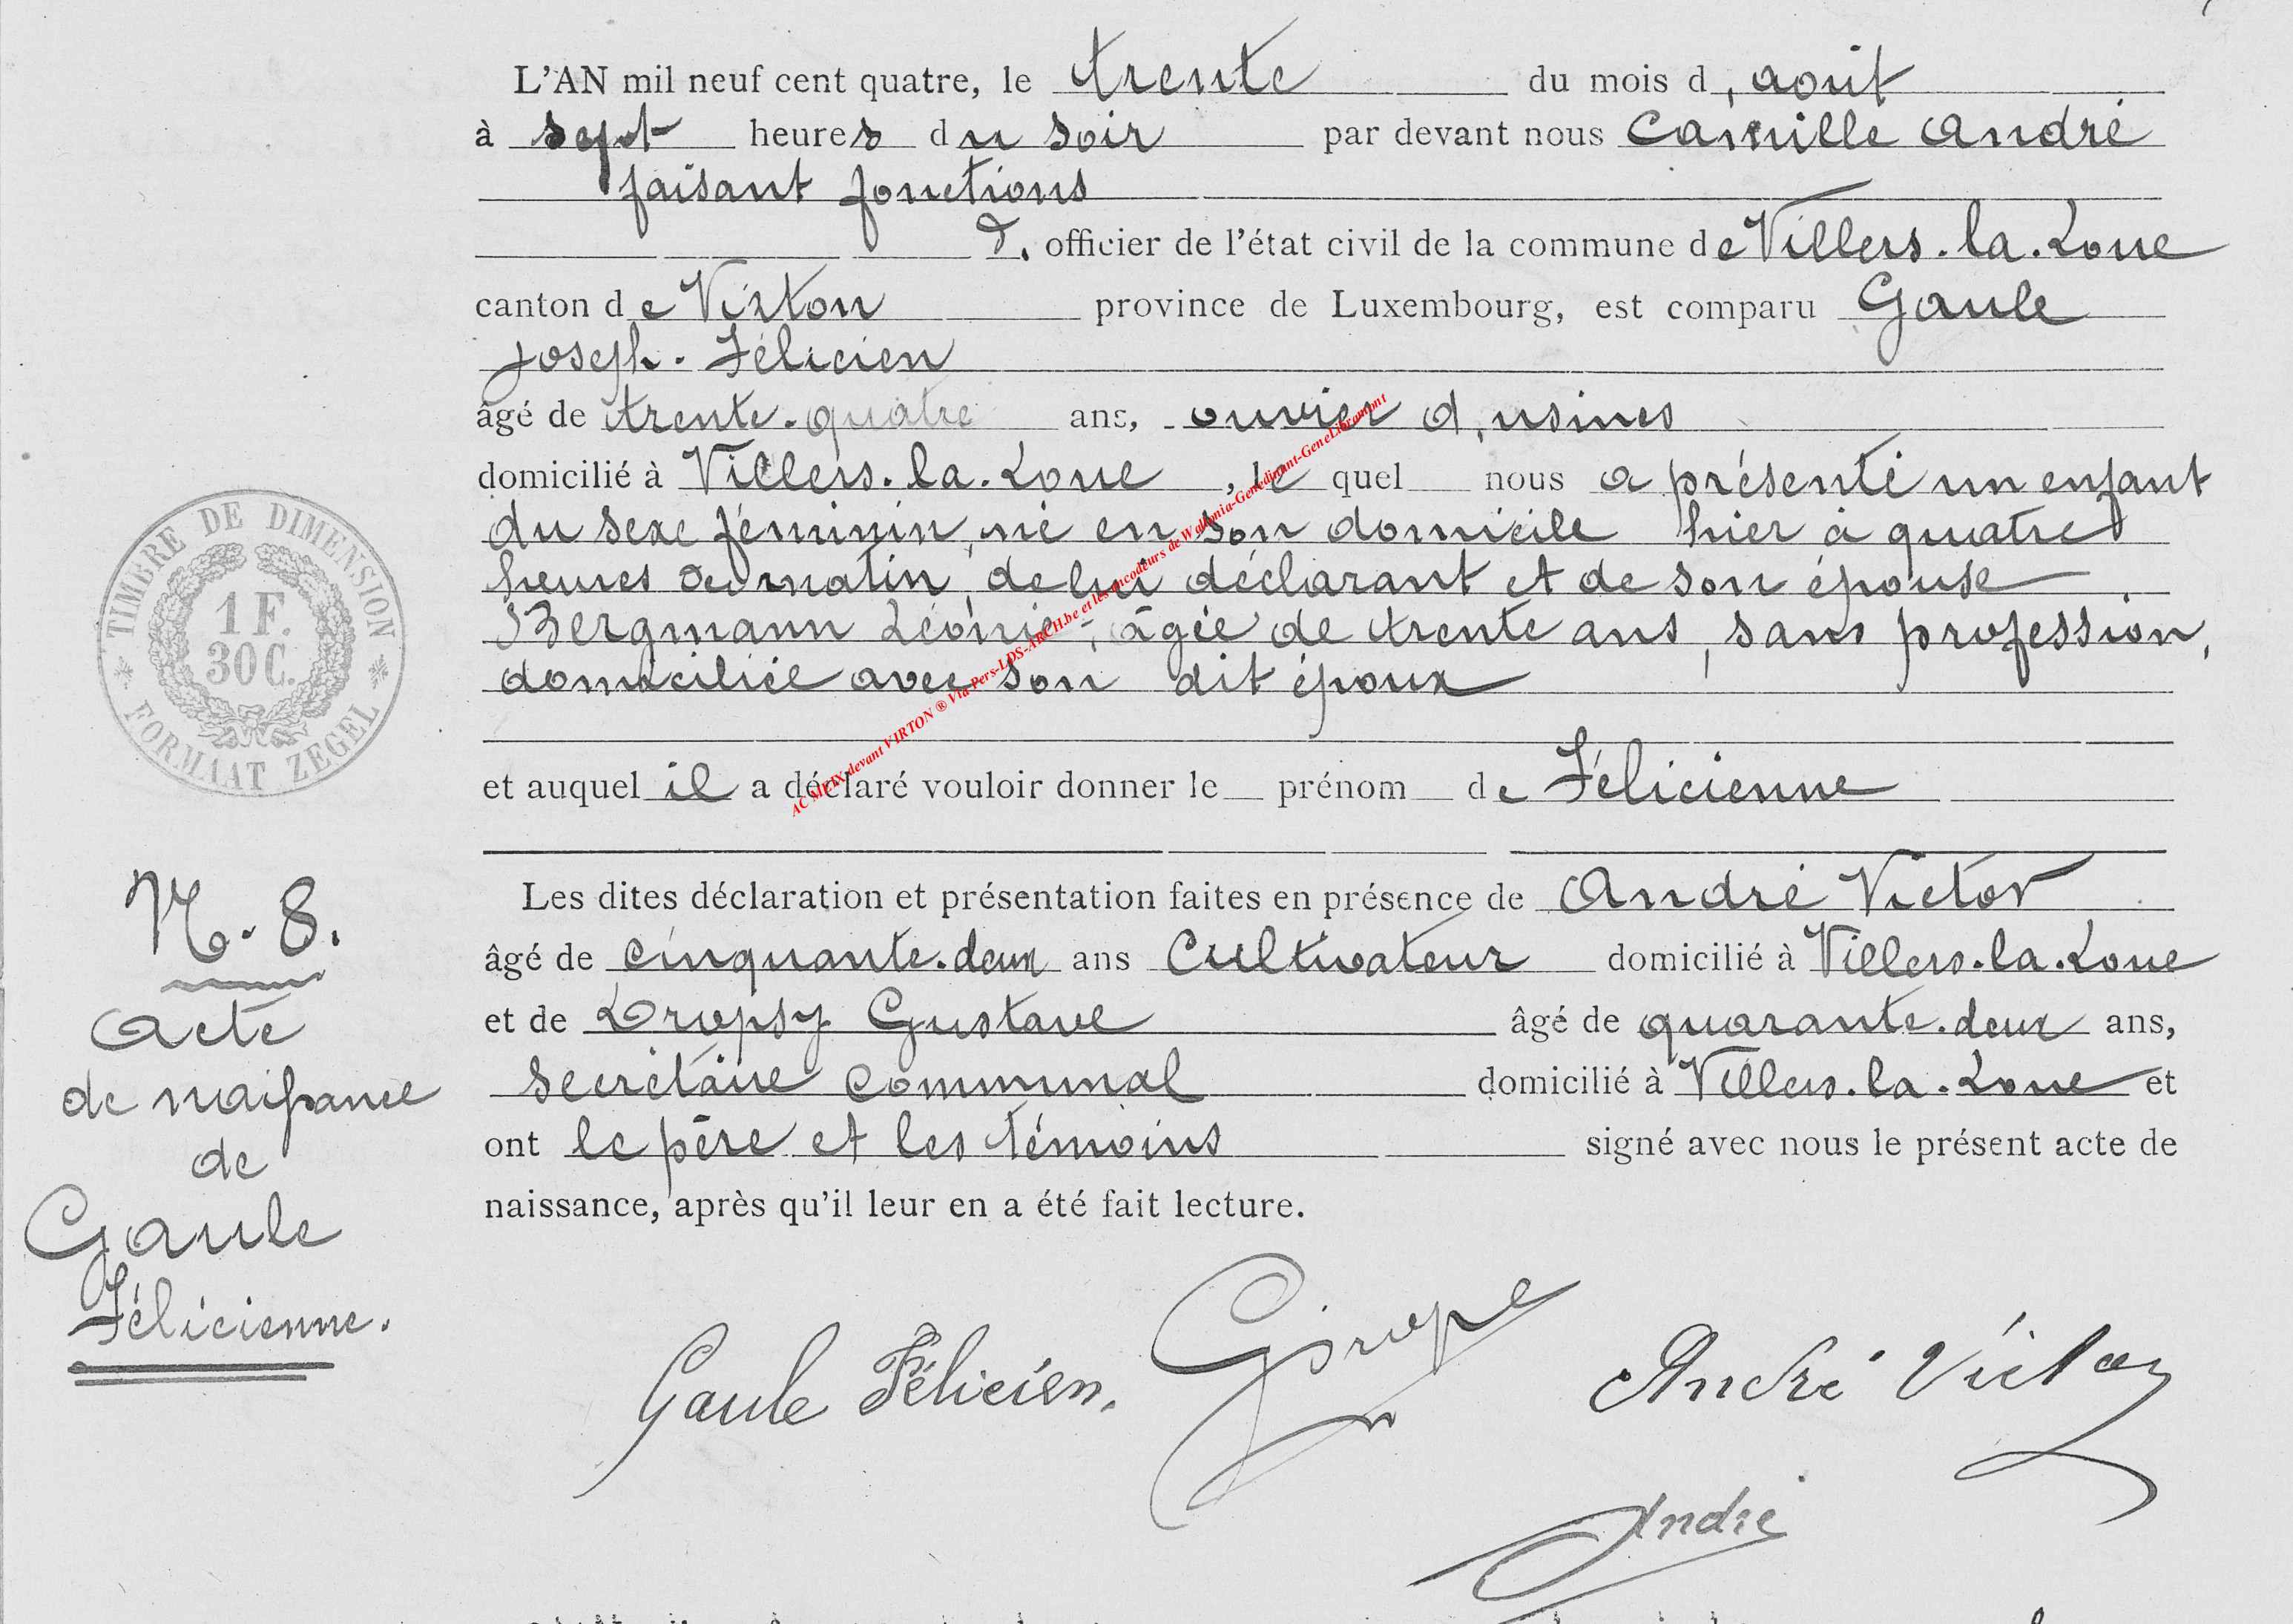 L'AN mil neuf cent quatre, le trente du mois d, août
à sept heures du soir par devant nous Camille André
faisant fonctions
d, officier de l'état civil de la commune de Villers-la-Loue
canton de Virton province de Luxembourg, est comparu Gaule
Joseph-Félicien
âgé de trente-quatre ans, ouvrier d, usines
domicilié à Villers-la-Loue, le quel nous a présenté un enfant
du sexe féminin, né en son domicile hier à quatre
heures du matin, de lui déclarant et de son épouse
Bergmann Léonie, âgée de trente ans, sans profession,
domiciliée avec son dit époux
et auquel il a déclaré vouloir donner le prénom de Félicienne
Les dites déclaration et présentation faites en présence de André Victor
âgé de cinquante-deux ans Cultivateur domicilié à Villers-la-Loue
et de Dropsy Gustave âgé de quarante-deux ans,
secrétaire communal domicilié à Villers-la-Loue et
ont le père et les témoins signé avec nous le présent acte de
naissance, après qu'il leur en a été fait lecture.
TIMBRE DE DIMENSION
1 F.
30 C.
FORMAAT ZEGEL
N. 8.
Acte
de naissance
de
Gaule
Félicienne.
AC MEIX devant VIRTON ® Via Pers-LDS-ARCH.be et les encodeurs de Wallonia-Genedinant-GeneLibramont
Gaule Félicien.
André Victor
André